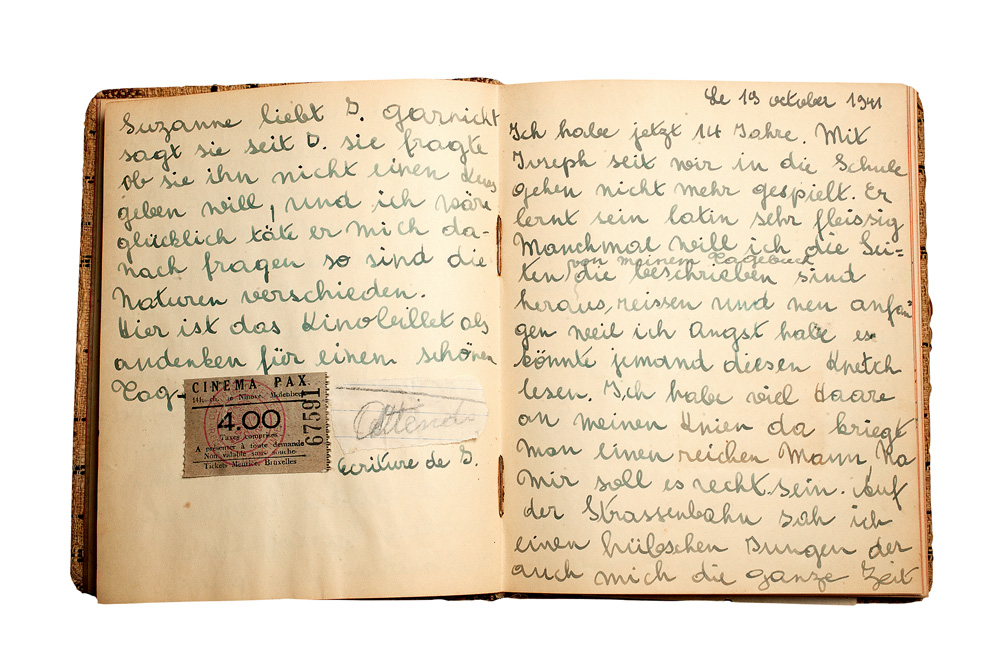 Suzanne liebt D. garnicht
sagt sie seit D. sie fragte
ob sie ihn nicht einen Kuss
geben will, und ich wäre
glücklich täte er mich da-
nach fragen so sind die
Naturen verschieden.
Hier ist das Kinobeillet als
andenken für einem schönen
Tag-
CINEMA PAX.
144, ch. de Ninove, Molenbeek
4.00
67591
Taxes comprises
A présenter à toute demande
Non valable sans souche
Tickets Maurice, Bruxelles
Ecriture de D.
Le 13 october 1941
Ich habe jetzt 14 Jahre. Mit
Joseph seit wir in die Schule
gehen nicht mehr gespielt. Er
lernt sein latin sehr fleissig
Manchmal will ich die Sei-
von meinem Tagebuch
ten die beschrieben sind
heraus, reissen und neu anfan-
gen weil ich Angst habe es
könnte jemand diesen Knetch
lesen. Ich habe viel Haare
an meinen Knien da kriegt
man einen reichen Mann Na
mir soll es recht sein. Auf
der Strassenbahn sah ich
einen hübschen Jungen der
auch mich die ganze Zeit